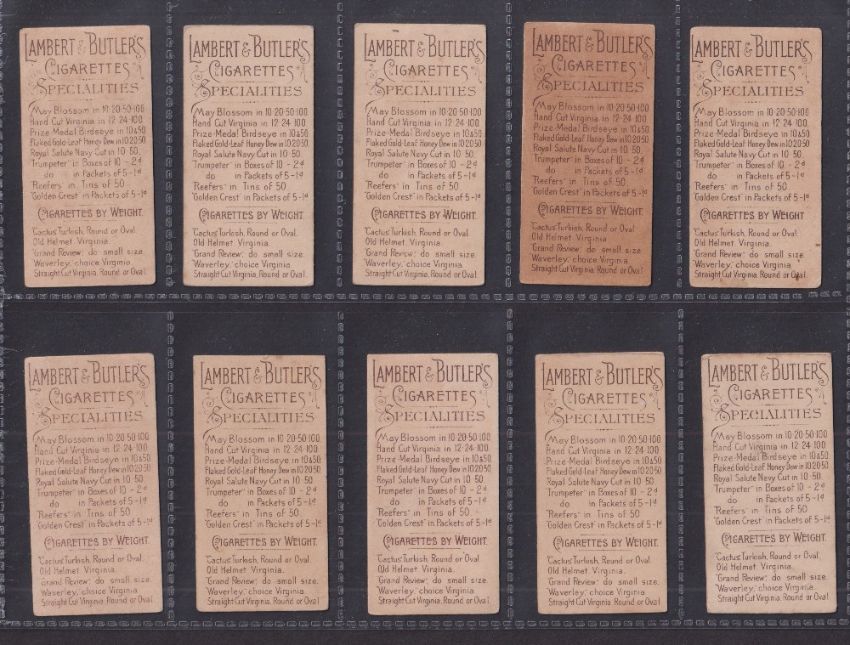 LAMBERT & BUTLER'S
CIGARETTES
SPECIALITIES
May Blossom in 10·20·50·100
Hand Cut Virginia in 12·24·100.
Prize-Medal Birdseye in 10&50
Flaked Gold-Leaf Honey Dew in 10.20.50
Royal Salute Navy Cut in 10·50.
'Trumpeter' in Boxes of 10 - 2d
do in Packets of 5 - 1d
'Reefers' in Tins of 50
'Golden Crest' in Packets of 5 - 1d
CIGARETTES BY WEIGHT.
'Cactus' Turkish, Round or Oval.
Old Helmet. Virginia.
'Grand Review': do small size.
'Waverley,' choice Virginia.
Straight Cut Virginia. Round or Oval.
LAMBERT & BUTLER'S
CIGARETTES
SPECIALITIES
May Blossom in 10·20·50·100
Hand Cut Virginia in 12·24·100.
Prize-Medal Birdseye in 10&50
Flaked Gold-Leaf Honey Dew in 10.20.50
Royal Salute Navy Cut in 10·50.
'Trumpeter' in Boxes of 10 - 2d
do in Packets of 5 - 1d
'Reefers' in Tins of 50
'Golden Crest' in Packets of 5 - 1d
CIGARETTES BY WEIGHT.
'Cactus' Turkish, Round or Oval.
Old Helmet. Virginia.
'Grand Review': do small size.
'Waverley,' choice Virginia.
Straight Cut Virginia. Round or Oval.
LAMBERT & BUTLER'S
CIGARETTES
SPECIALITIES
May Blossom in 10·20·50·100
Hand Cut Virginia in 12·24·100.
Prize-Medal Birdseye in 10&50
Flaked Gold-Leaf Honey Dew in 10.20.50
Royal Salute Navy Cut in 10·50.
'Trumpeter' in Boxes of 10 - 2d
do in Packets of 5 - 1d
'Reefers' in Tins of 50
'Golden Crest' in Packets of 5 - 1d
CIGARETTES BY WEIGHT.
'Cactus' Turkish, Round or Oval.
Old Helmet. Virginia.
'Grand Review': do small size.
'Waverley,' choice Virginia.
Straight Cut Virginia. Round or Oval.
LAMBERT & BUTLER'S
CIGARETTES
SPECIALITIES
May Blossom in 10·20·50·100
Hand Cut Virginia in 12·24·100.
Prize-Medal Birdseye in 10&50
Flaked Gold-Leaf Honey Dew in 10.20.50
Royal Salute Navy Cut in 10·50.
'Trumpeter' in Boxes of 10 - 2d
do in Packets of 5 - 1d
'Reefers' in Tins of 50
'Golden Crest' in Packets of 5 - 1d
CIGARETTES BY WEIGHT.
'Cactus' Turkish, Round or Oval.
Old Helmet. Virginia.
'Grand Review': do small size.
'Waverley,' choice Virginia.
Straight Cut Virginia. Round or Oval.
LAMBERT & BUTLER'S
CIGARETTES
SPECIALITIES
May Blossom in 10·20·50·100
Hand Cut Virginia in 12·24·100.
Prize-Medal Birdseye in 10&50
Flaked Gold-Leaf Honey Dew in 10.20.50
Royal Salute Navy Cut in 10·50.
'Trumpeter' in Boxes of 10 - 2d
do in Packets of 5 - 1d
'Reefers' in Tins of 50
'Golden Crest' in Packets of 5 - 1d
CIGARETTES BY WEIGHT.
'Cactus' Turkish, Round or Oval.
Old Helmet. Virginia.
'Grand Review': do small size.
'Waverley,' choice Virginia.
Straight Cut Virginia. Round or Oval.
LAMBERT & BUTLER'S
CIGARETTES
SPECIALITIES
May Blossom in 10·20·50·100
Hand Cut Virginia in 12·24·100.
Prize-Medal Birdseye in 10&50
Flaked Gold-Leaf Honey Dew in 10.20.50
Royal Salute Navy Cut in 10·50.
'Trumpeter' in Boxes of 10 - 2d
do in Packets of 5 - 1d
'Reefers' in Tins of 50
'Golden Crest' in Packets of 5 - 1d
CIGARETTES BY WEIGHT.
'Cactus' Turkish, Round or Oval.
Old Helmet. Virginia.
'Grand Review': do small size.
'Waverley,' choice Virginia.
Straight Cut Virginia. Round or Oval.
LAMBERT & BUTLER'S
CIGARETTES
SPECIALITIES
May Blossom in 10·20·50·100
Hand Cut Virginia in 12·24·100.
Prize-Medal Birdseye in 10&50
Flaked Gold-Leaf Honey Dew in 10.20.50
Royal Salute Navy Cut in 10·50.
'Trumpeter' in Boxes of 10 - 2d
do in Packets of 5 - 1d
'Reefers' in Tins of 50
'Golden Crest' in Packets of 5 - 1d
CIGARETTES BY WEIGHT.
'Cactus' Turkish, Round or Oval.
Old Helmet. Virginia.
'Grand Review': do small size.
'Waverley,' choice Virginia.
Straight Cut Virginia. Round or Oval.
LAMBERT & BUTLER'S
CIGARETTES
SPECIALITIES
May Blossom in 10·20·50·100
Hand Cut Virginia in 12·24·100.
Prize-Medal Birdseye in 10&50
Flaked Gold-Leaf Honey Dew in 10.20.50
Royal Salute Navy Cut in 10·50.
'Trumpeter' in Boxes of 10 - 2d
do in Packets of 5 - 1d
'Reefers' in Tins of 50
'Golden Crest' in Packets of 5 - 1d
CIGARETTES BY WEIGHT.
'Cactus' Turkish, Round or Oval.
Old Helmet. Virginia.
'Grand Review': do small size.
'Waverley,' choice Virginia.
Straight Cut Virginia. Round or Oval.
LAMBERT & BUTLER'S
CIGARETTES
SPECIALITIES
May Blossom in 10·20·50·100
Hand Cut Virginia in 12·24·100.
Prize-Medal Birdseye in 10&50
Flaked Gold-Leaf Honey Dew in 10.20.50
Royal Salute Navy Cut in 10·50.
'Trumpeter' in Boxes of 10 - 2d
do in Packets of 5 - 1d
'Reefers' in Tins of 50
'Golden Crest' in Packets of 5 - 1d
CIGARETTES BY WEIGHT.
'Cactus' Turkish, Round or Oval.
Old Helmet. Virginia.
'Grand Review': do small size.
'Waverley,' choice Virginia.
Straight Cut Virginia. Round or Oval.
LAMBERT & BUTLER'S
CIGARETTES
SPECIALITIES
May Blossom in 10·20·50·100
Hand Cut Virginia in 12·24·100.
Prize-Medal Birdseye in 10&50
Flaked Gold-Leaf Honey Dew in 10.20.50
Royal Salute Navy Cut in 10·50.
'Trumpeter' in Boxes of 10 - 2d
do in Packets of 5 - 1d
'Reefers' in Tins of 50
'Golden Crest' in Packets of 5 - 1d
CIGARETTES BY WEIGHT.
'Cactus' Turkish, Round or Oval.
Old Helmet. Virginia.
'Grand Review': do small size.
'Waverley,' choice Virginia.
Straight Cut Virginia. Round or Oval.